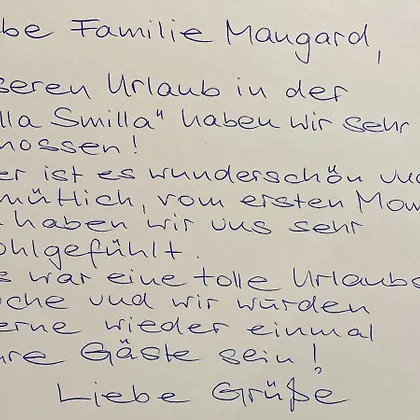 be Familie Mangard,
seren Urlaub in der
lla Smilla" haben wir sehr
nossen!
er ist es wunderschön und
mütlich, vom ersten Mom
haben wir uns sehr
ohlgefühlt.
s war eine tolle Urlaubs
oche und wir würden
erne wieder einmal
hre Gäste sein!
Liebe Grüße